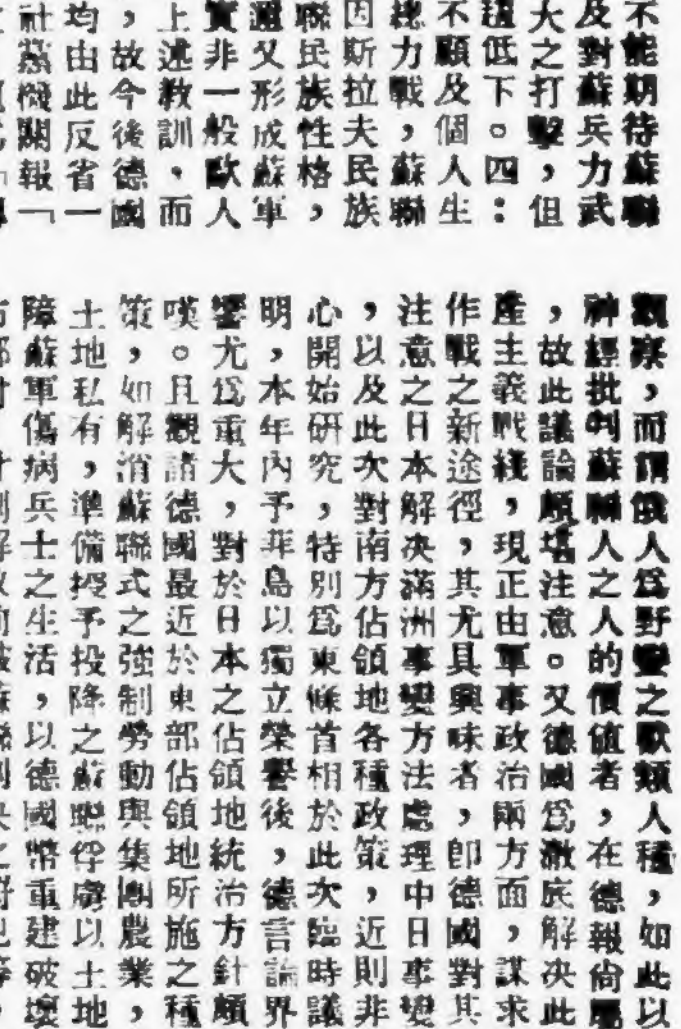 不能期待蘇聯
及對蘇兵力武
大之打擊，但
趨低下。四：
不顧及個人生
總力戰，蘇聯
因斯拉夫民族
聯民族性格，
還又形成蘇軍
實非一般歐人
上述教訓，而
，故今後德國
均由此反省一
社黨機關報「
觀察，而謂俄人爲野蠻之獸類人種，如此以
神經批判蘇聯人之人的價值者，在德報尙屬
，故此議論頗堪注意。又德國爲澈底解決此
產主義戰綫，現正由軍事政治兩方面，謀求
作戰之新途徑，其尤具興味者，即德國對其
注意之日本解決滿洲事變方法處理中日事變
，以及此次對南方佔領地各種政策，近則非
心開始研究，特別爲東條首相於此次臨時議
明，本年內予菲島以獨立榮譽後，德言論界
響尤爲重大，對於日本之佔領地統治方針頗
嘆。且觀諸德國最近於東部佔領地所施之種
策，如解消蘇聯式之強制勞動與集團農業，
土地私有，準備授予投降之蘇聯俘虜以土地
障蘇軍傷病兵士之生活，以德國幣重建破壞